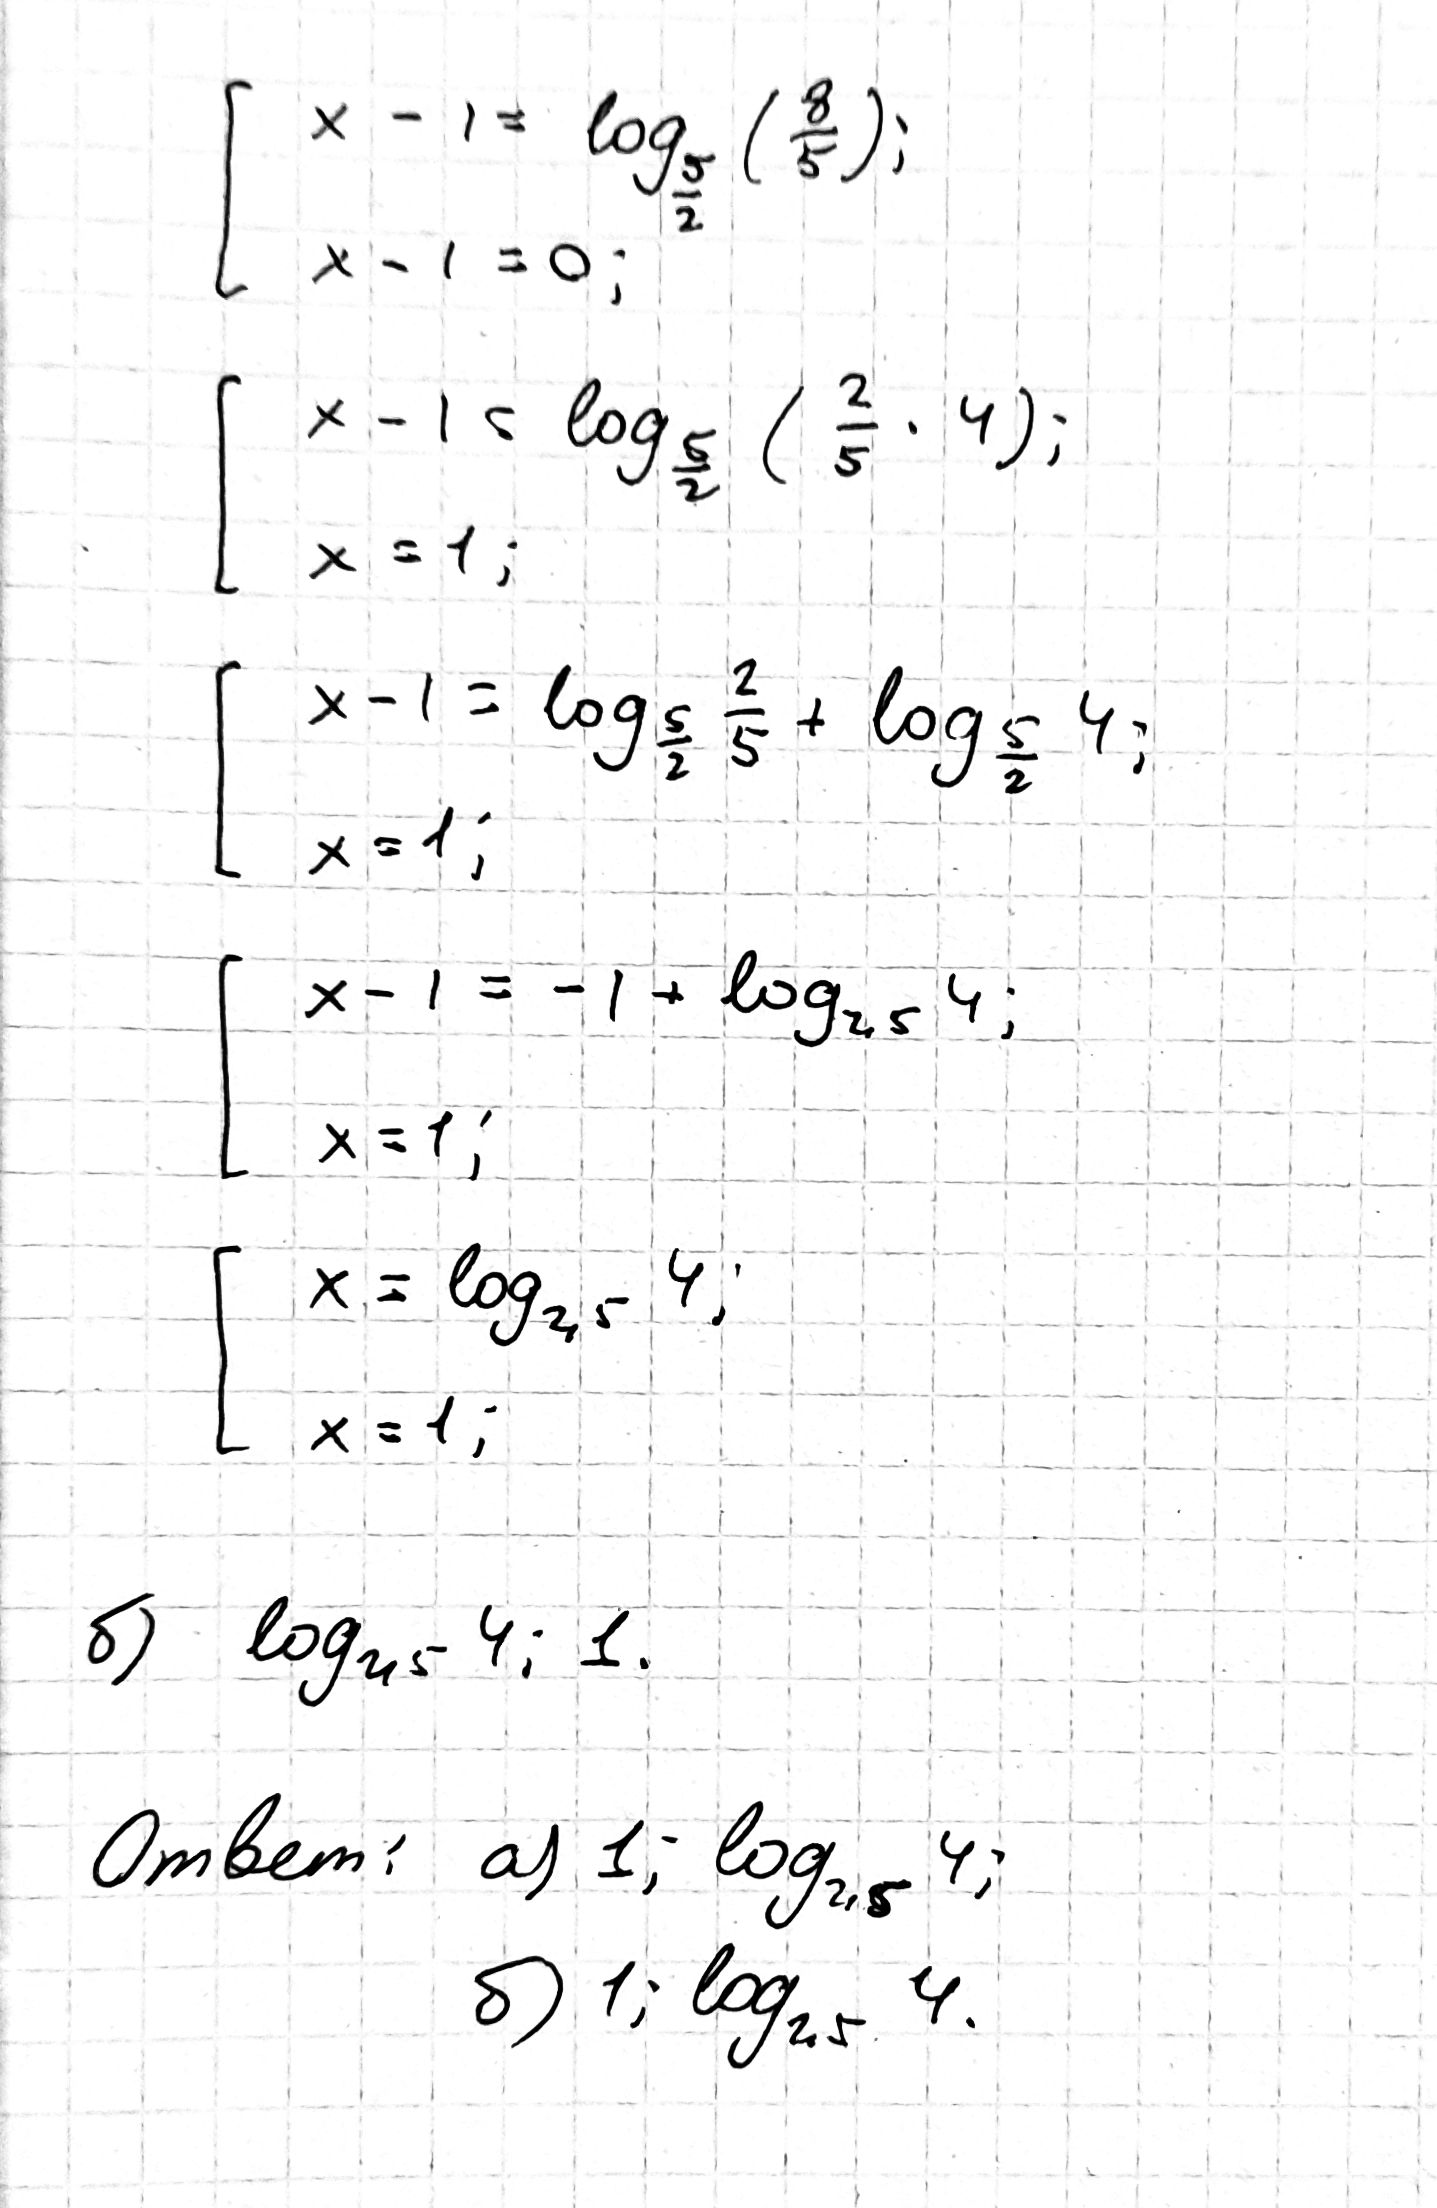 x - 1 = log_{5/2} (8/5);
x - 1 = 0;
x - 1 = log_{5/2} (2/5 · 4);
x = 1;
x - 1 = log_{5/2} 2/5 + log_{5/2} 4;
x = 1;
x - 1 = -1 + log_{2,5} 4;
x = 1;
x = log_{2,5} 4;
x = 1;
б) log_{2,5} 4; 1.
Ответ: а) 1; log_{2,5} 4;
б) 1; log_{2,5} 4.